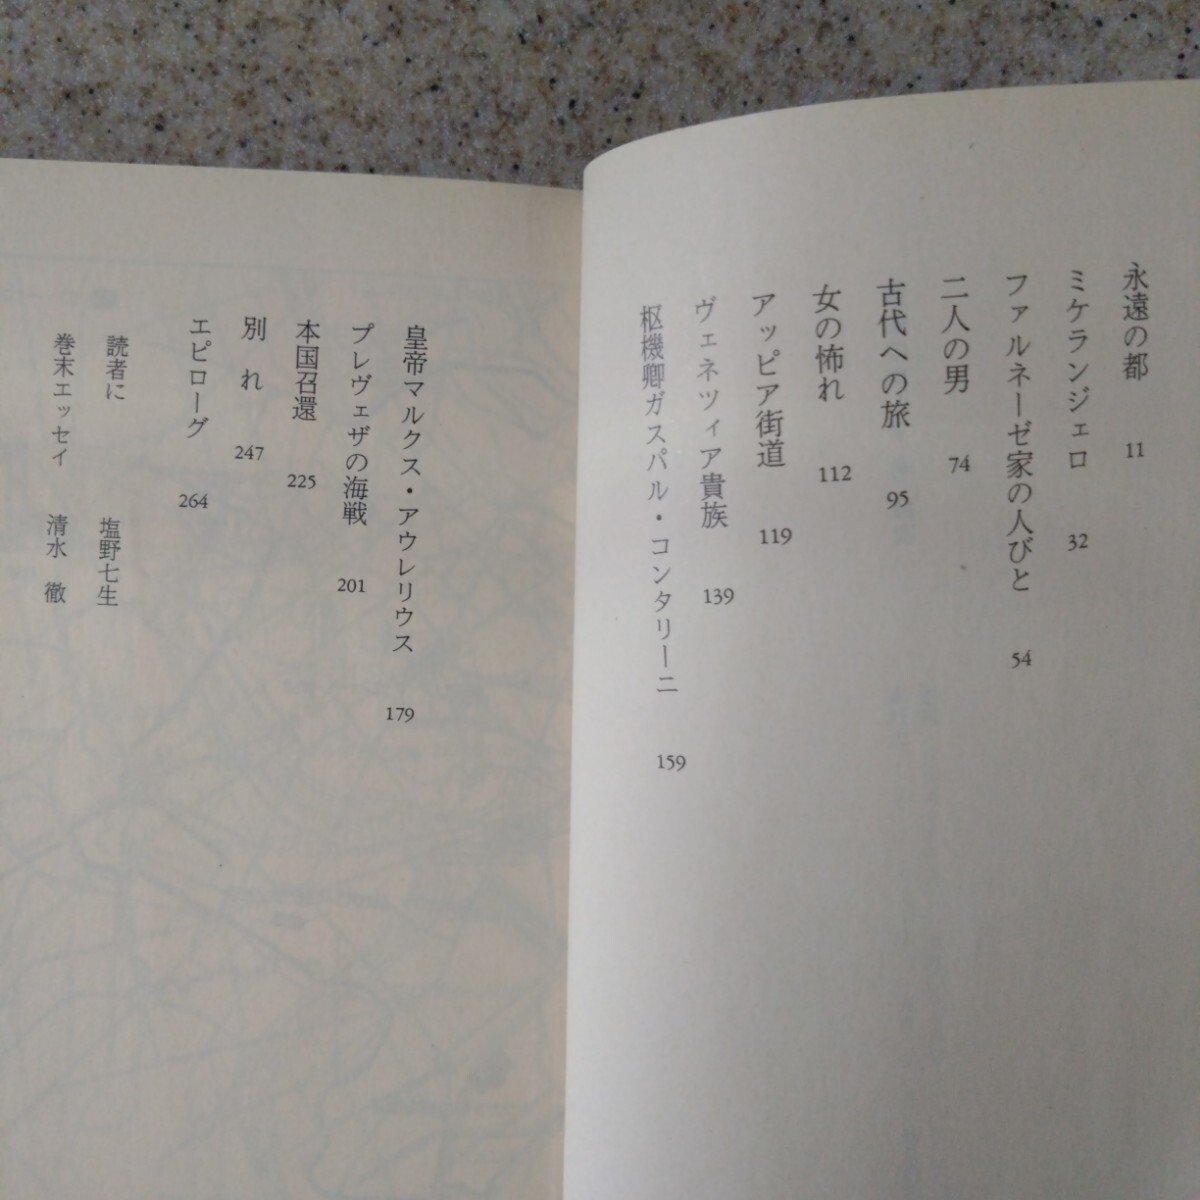 永遠の都 11
ミケランジェロ 32
ファルネーゼ家の人びと 54
二人の男 74
古代への旅 95
女の怖れ 112
アッピア街道 119
ヴェネツィア貴族 139
枢機卿ガスパル・コンタリーニ 159
皇帝マルクス・アウレリウス 179
プレヴェザの海戦 201
本国召還 225
別れ 247
エピローグ 264
読者に 塩野七生
巻末エッセイ 清水 徹